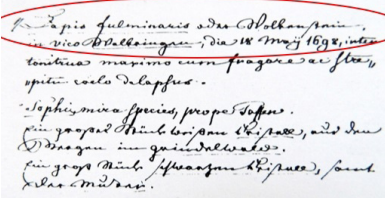 Lapis fulminaris oder Wolkenstein,
in vico Walkringen, die 18 Maij 1698, inter
tonitrua maximo cum fragore ac stre„
pitu coelo delapsus.
Sophiz mira species, prope
Ein großes Stück weißen Kristall, aus den
Bergen im Grindelwald.
Ein groß Stück schwarzen Kristall, samt
der Muder.